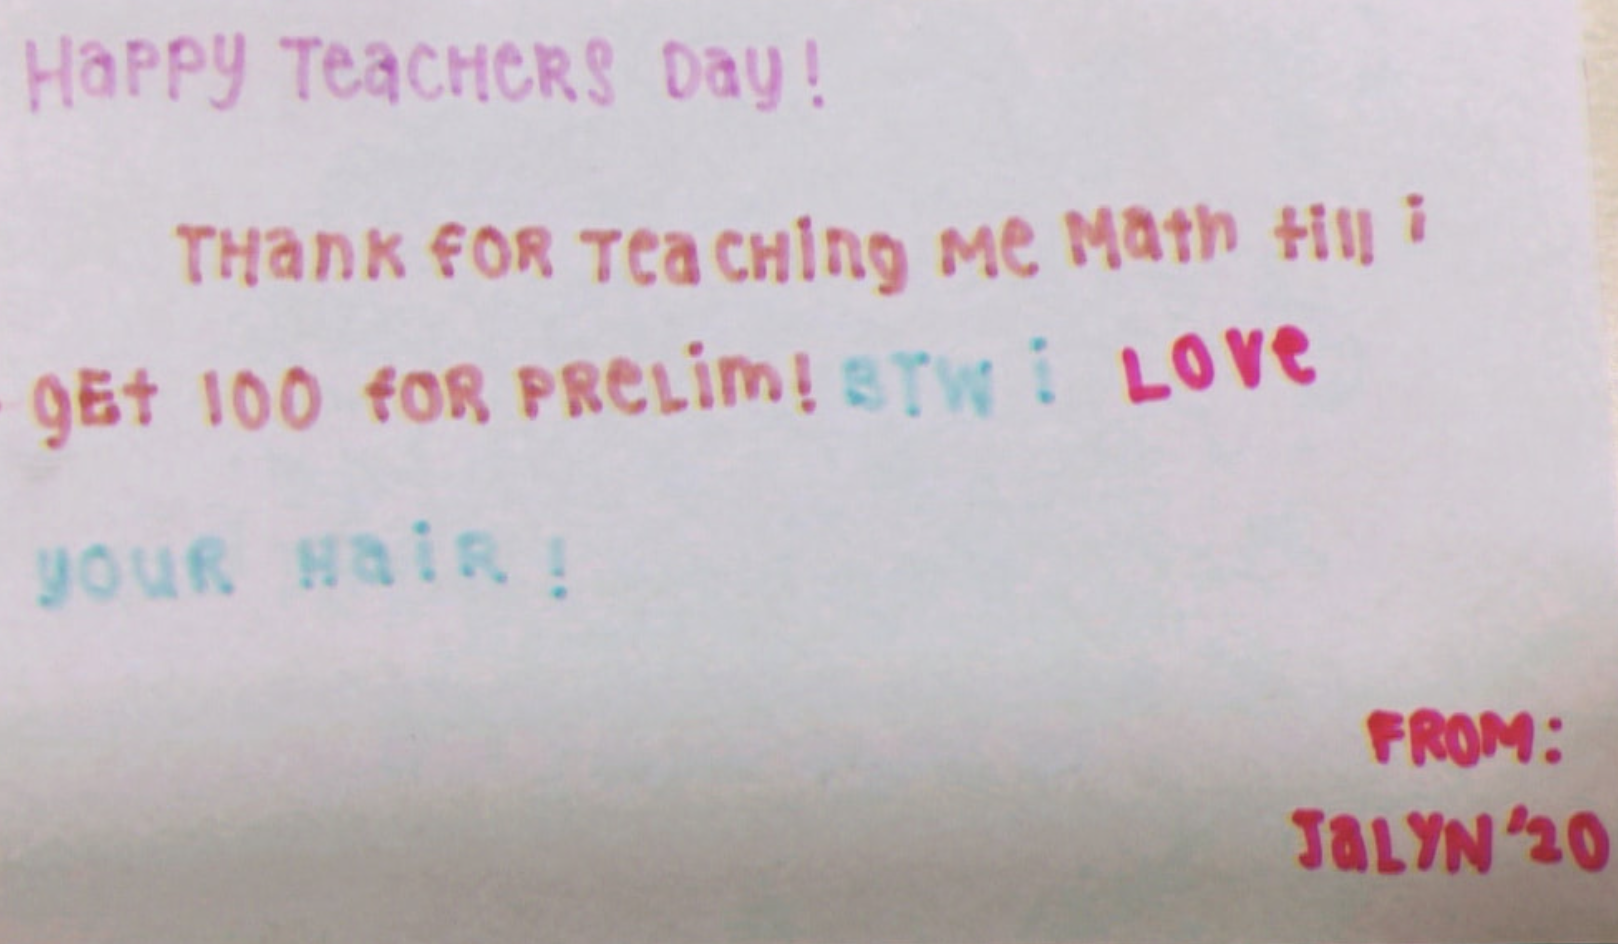 Happy Teachers Day!
Thank for teaching me Math till i
get 100 for prelim! BTW i LOVE
your Hair!
FROM:
JaLYN '20